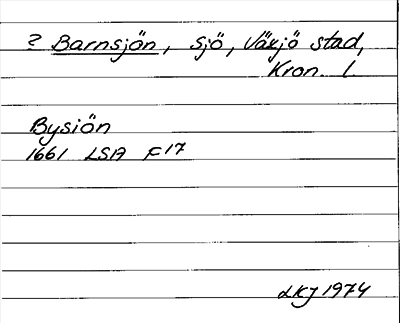 ? Barnsjön, sjö, Växjö stad,
Kron. l.
Bysiön
1661 LSA F17
LKJ 1974